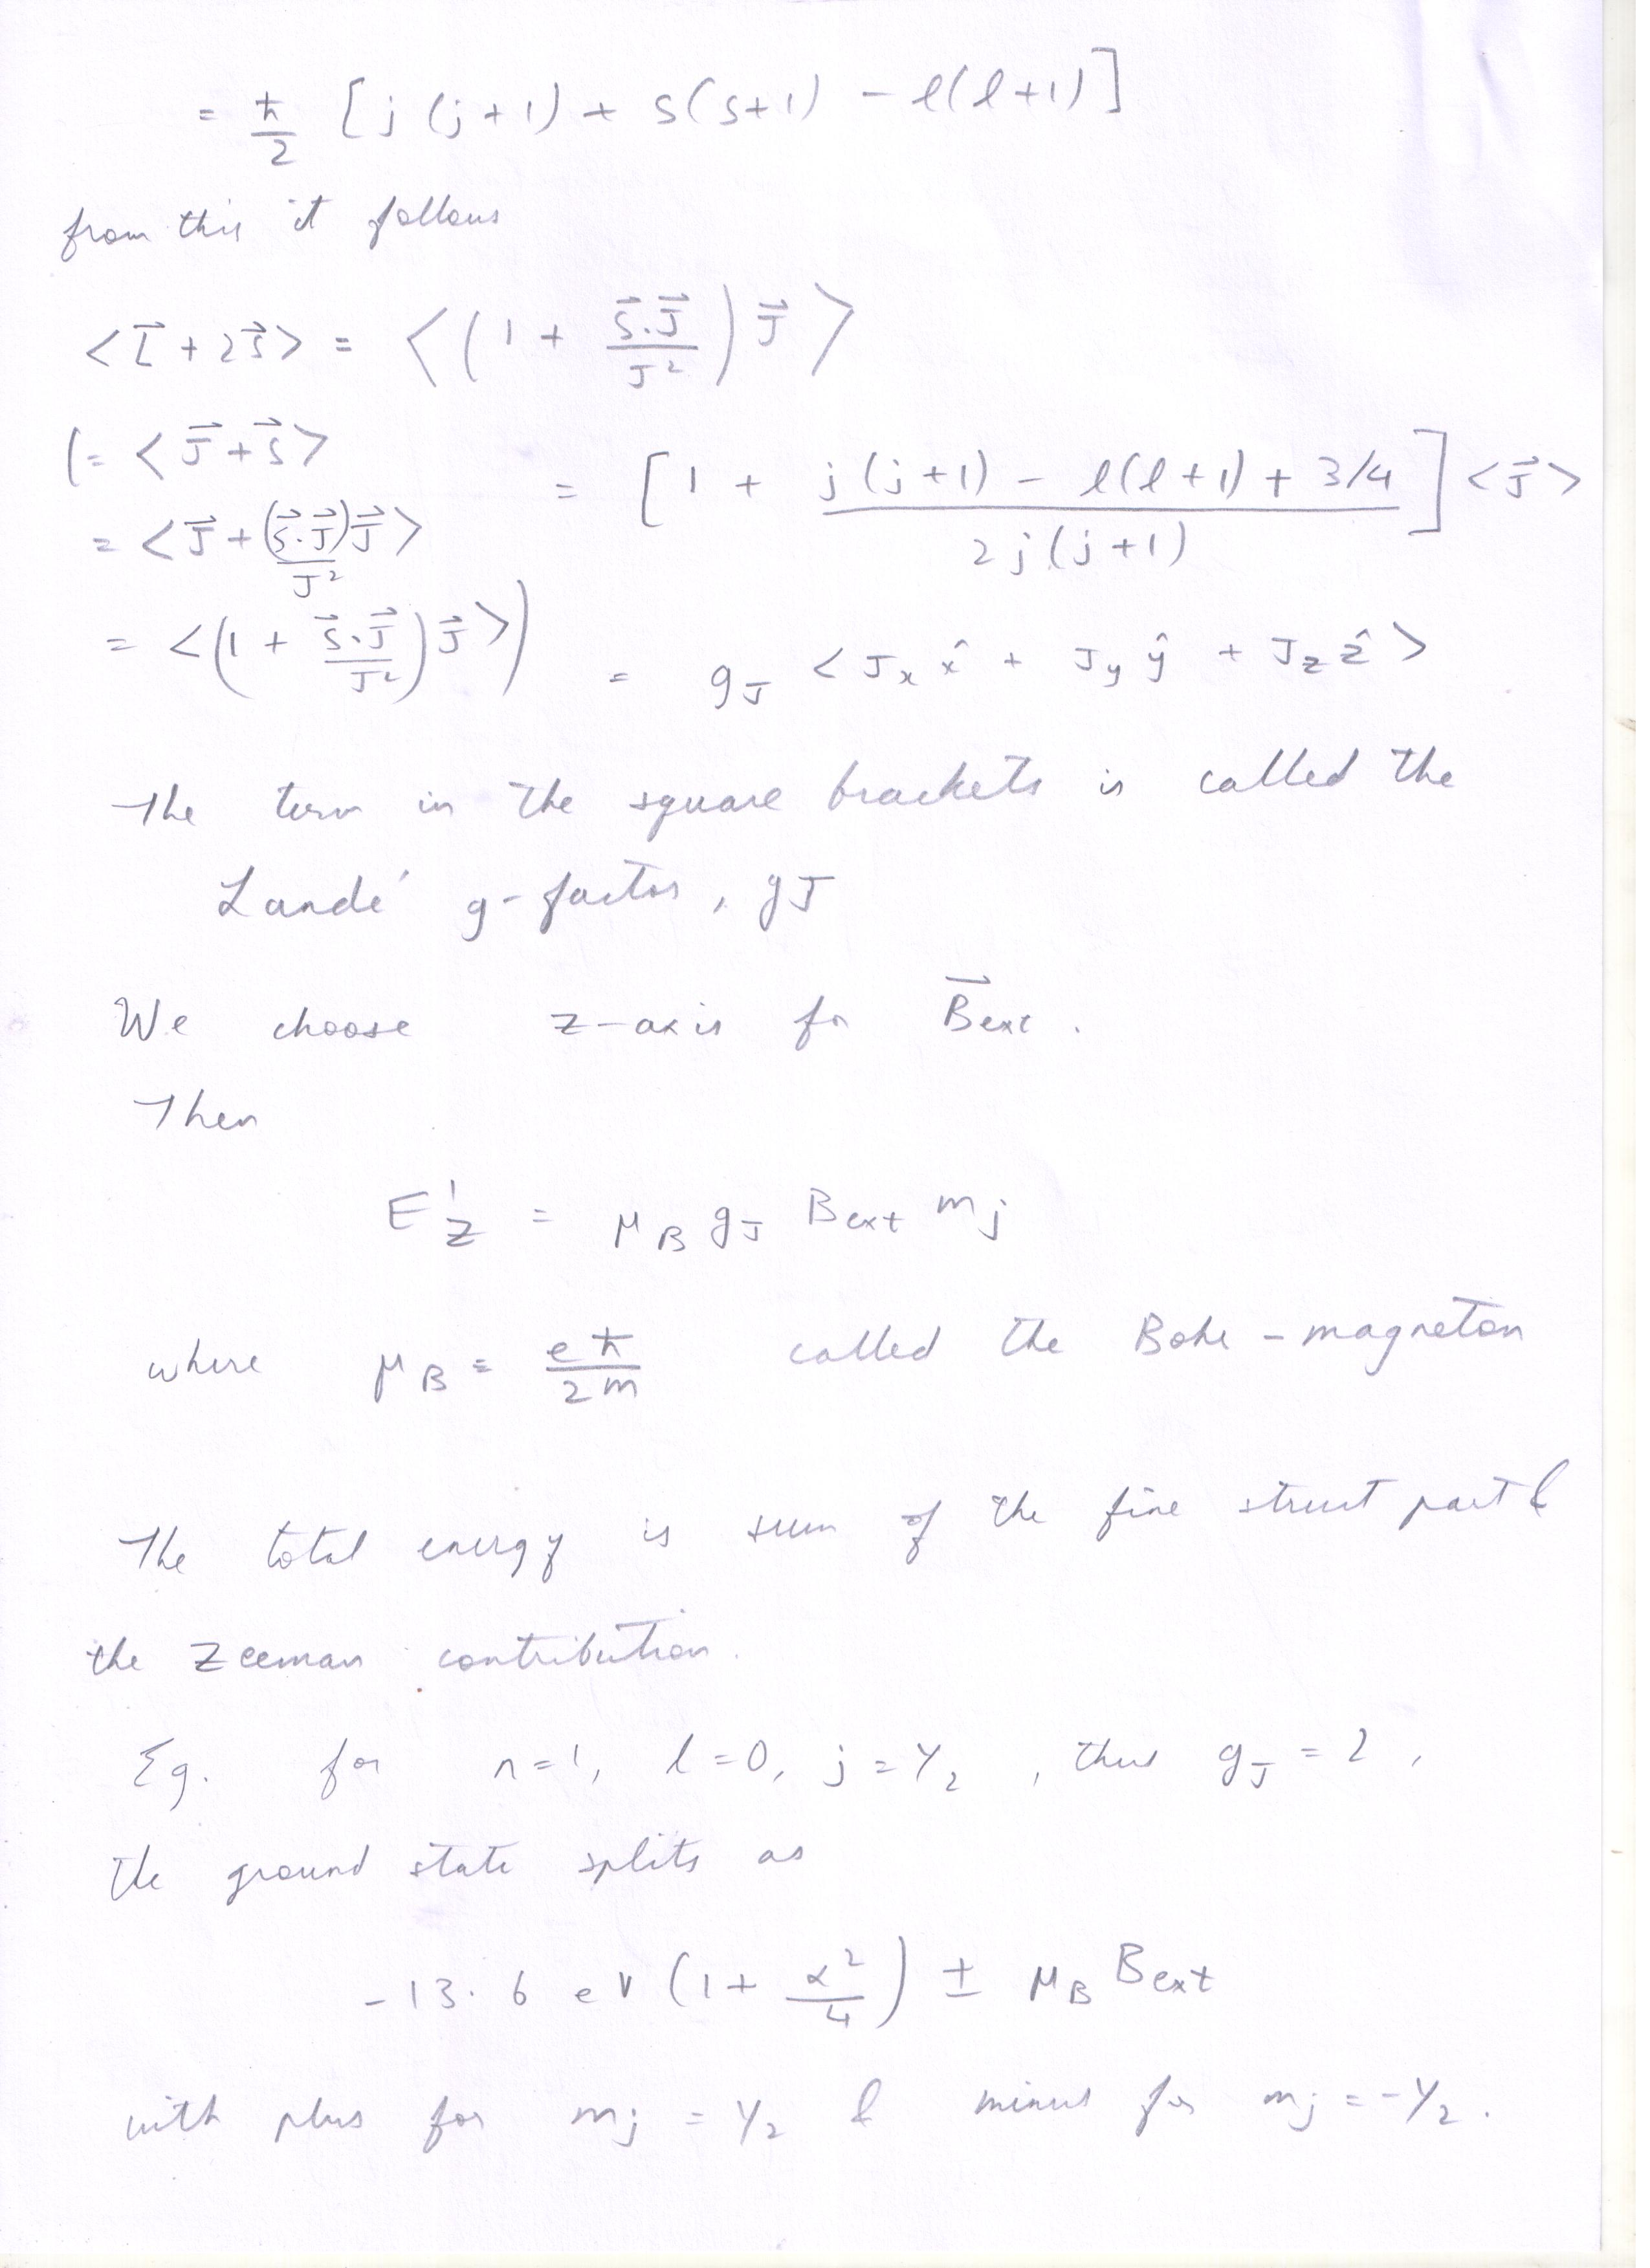 = ħ/2 [j(j+1) + s(s+1) - l(l+1)]
from this it follows
<L⃗ + 2S⃗> = <(1 + S⃗.J⃗/J²) J⃗>
(= <J⃗ + S⃗>
= [1 + (j(j+1) - l(l+1) + 3/4)/(2j(j+1))] <J⃗>
= <J⃗ + (S⃗.J⃗)J⃗/J²>
= <(1 + S⃗.J⃗/J²) J⃗>)
= g_J <J_x x̂ + J_y ŷ + J_z ẑ>
The term in the square brackets is called the
Landé g-factor, g_J
We choose z-axis for B⃗ext.
Then
E¹_Z = μ_B g_J Bext m_j
where μ_B = eħ/2m called the Bohr-magneton
The total energy is sum of the fine struct part &
the Zeeman contribution.
Eg. for n=1, l=0, j=1/2, thus g_J = 2,
the ground state splits as
-13.6 eV (1 + α²/4) ± μ_B Bext
with plus for m_j = 1/2 & minus for m_j = -1/2.